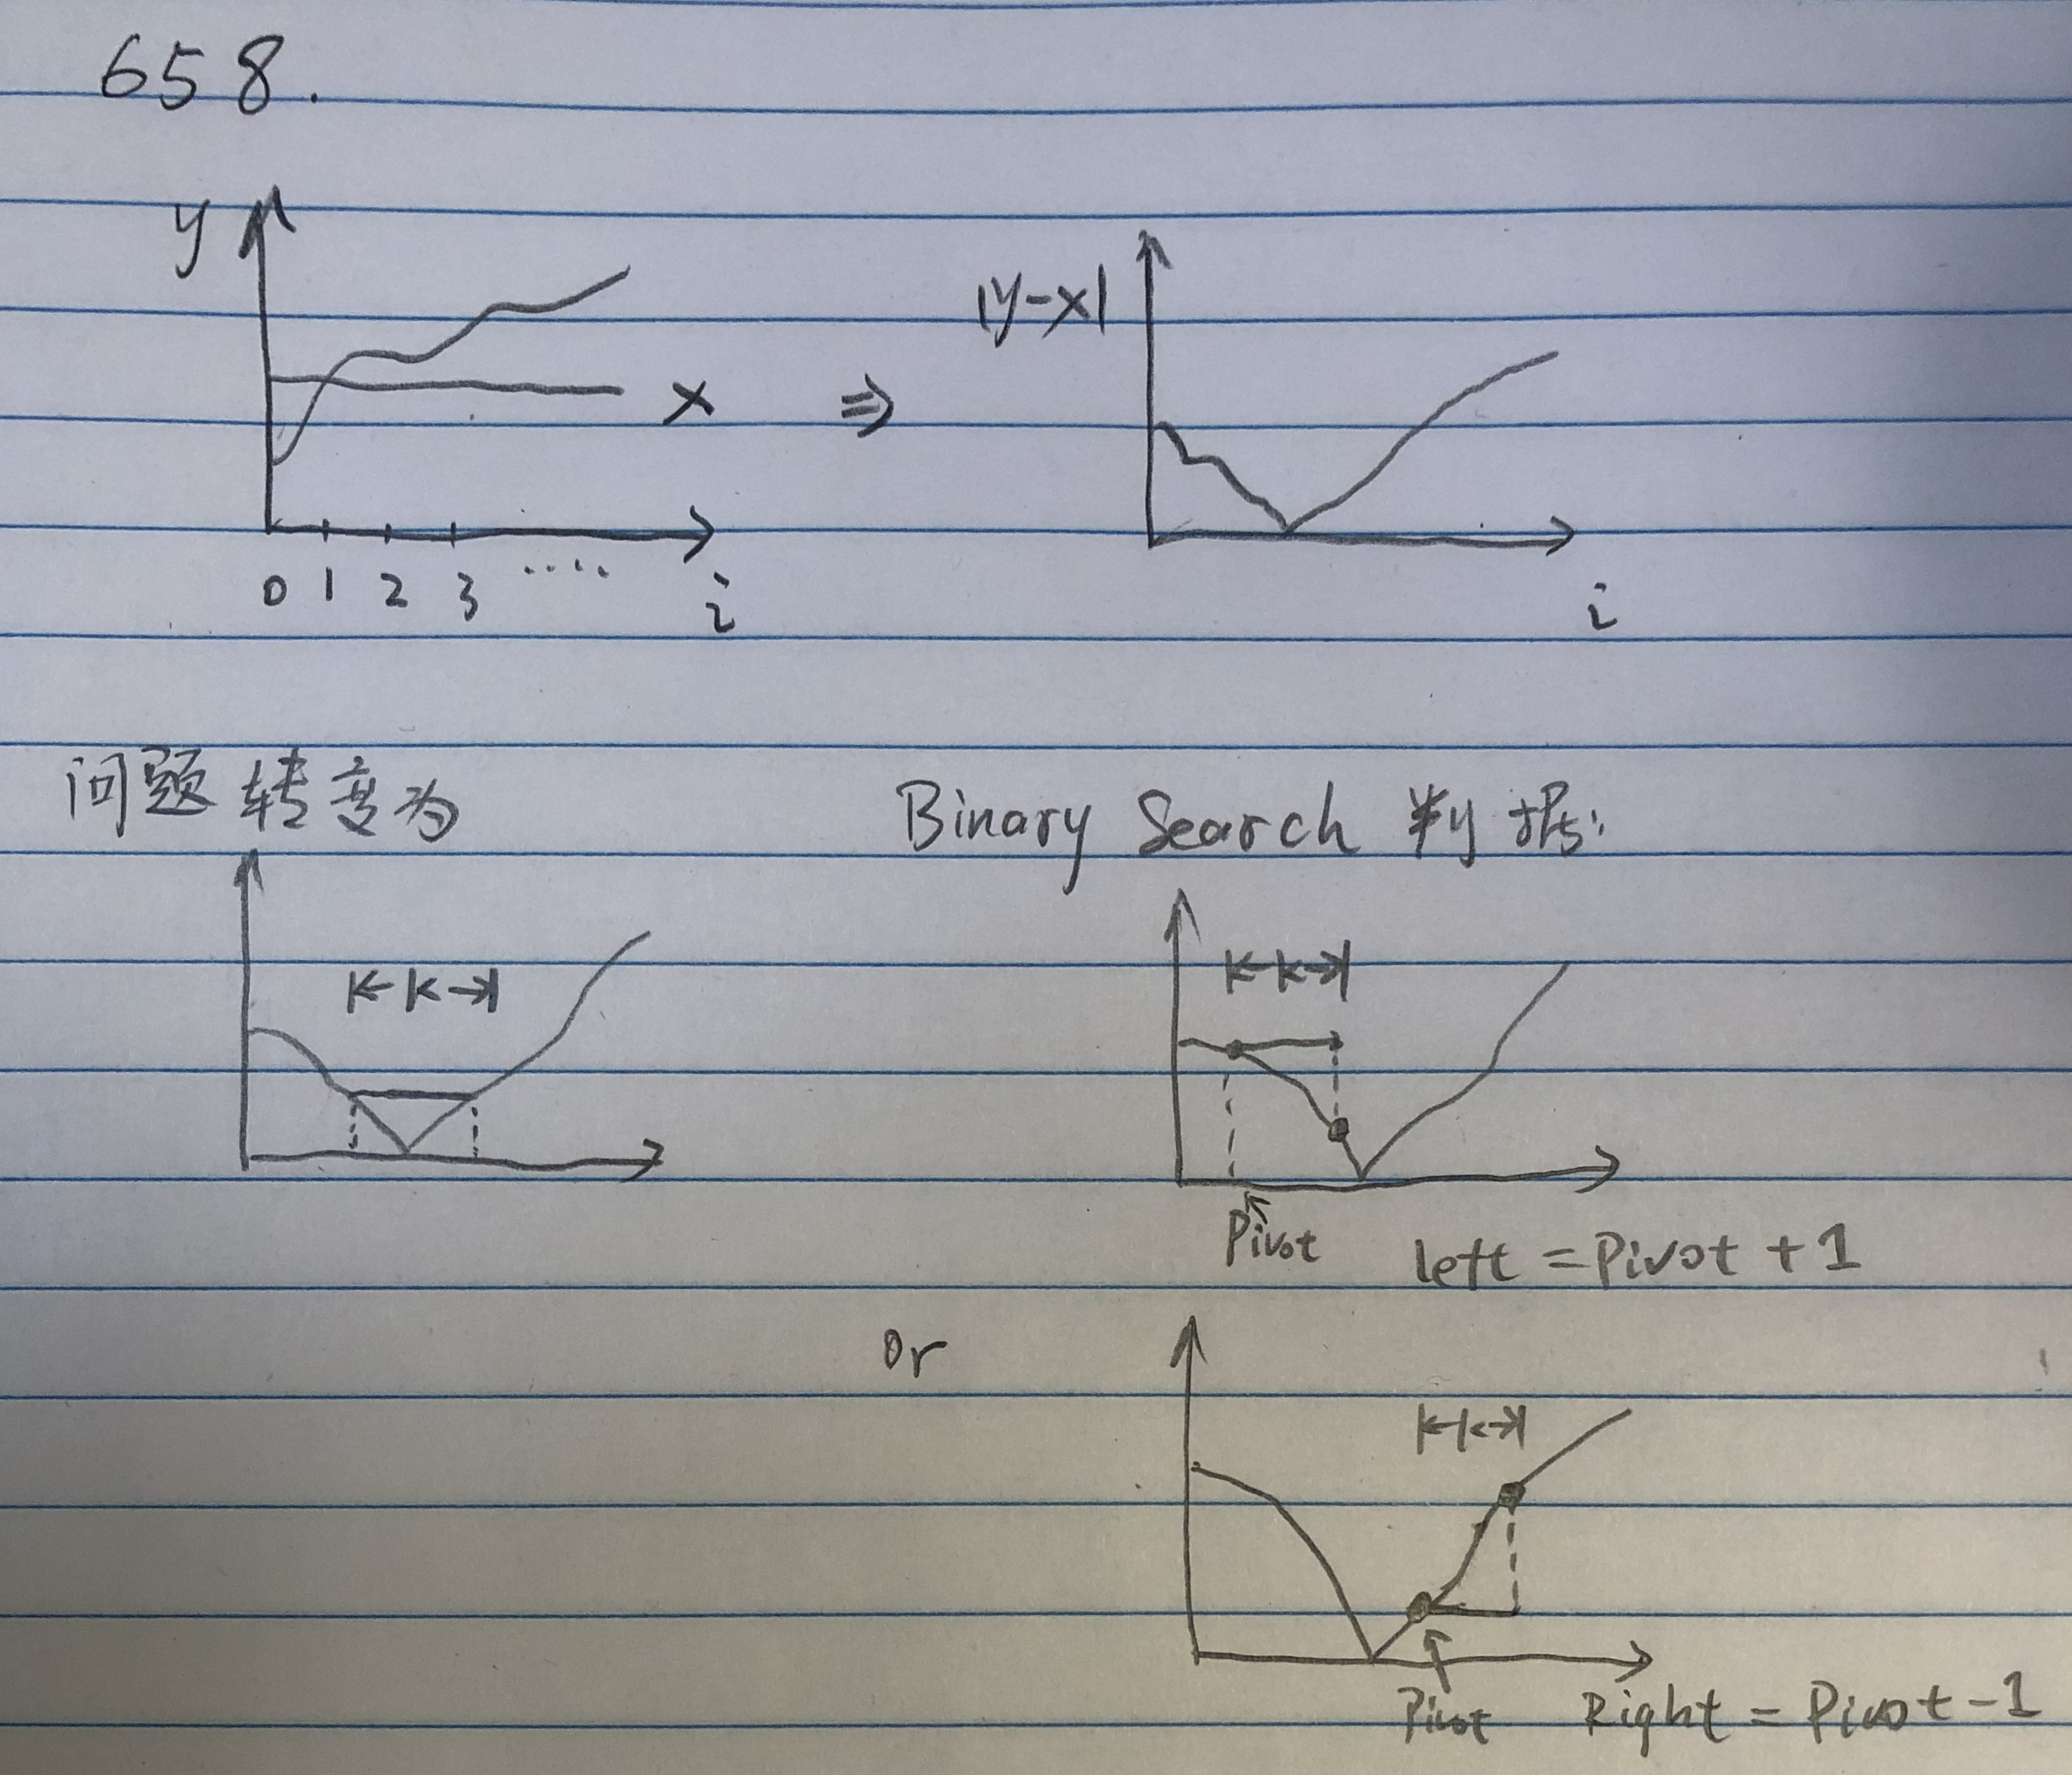 658.
y
x
0 1 2 3 .... i
⇒
|y-x|
i
问题转变为
k
Binary Search 判据:
k
Pivot
left = Pivot + 1
or
k
Pivot
Right = Pivot - 1